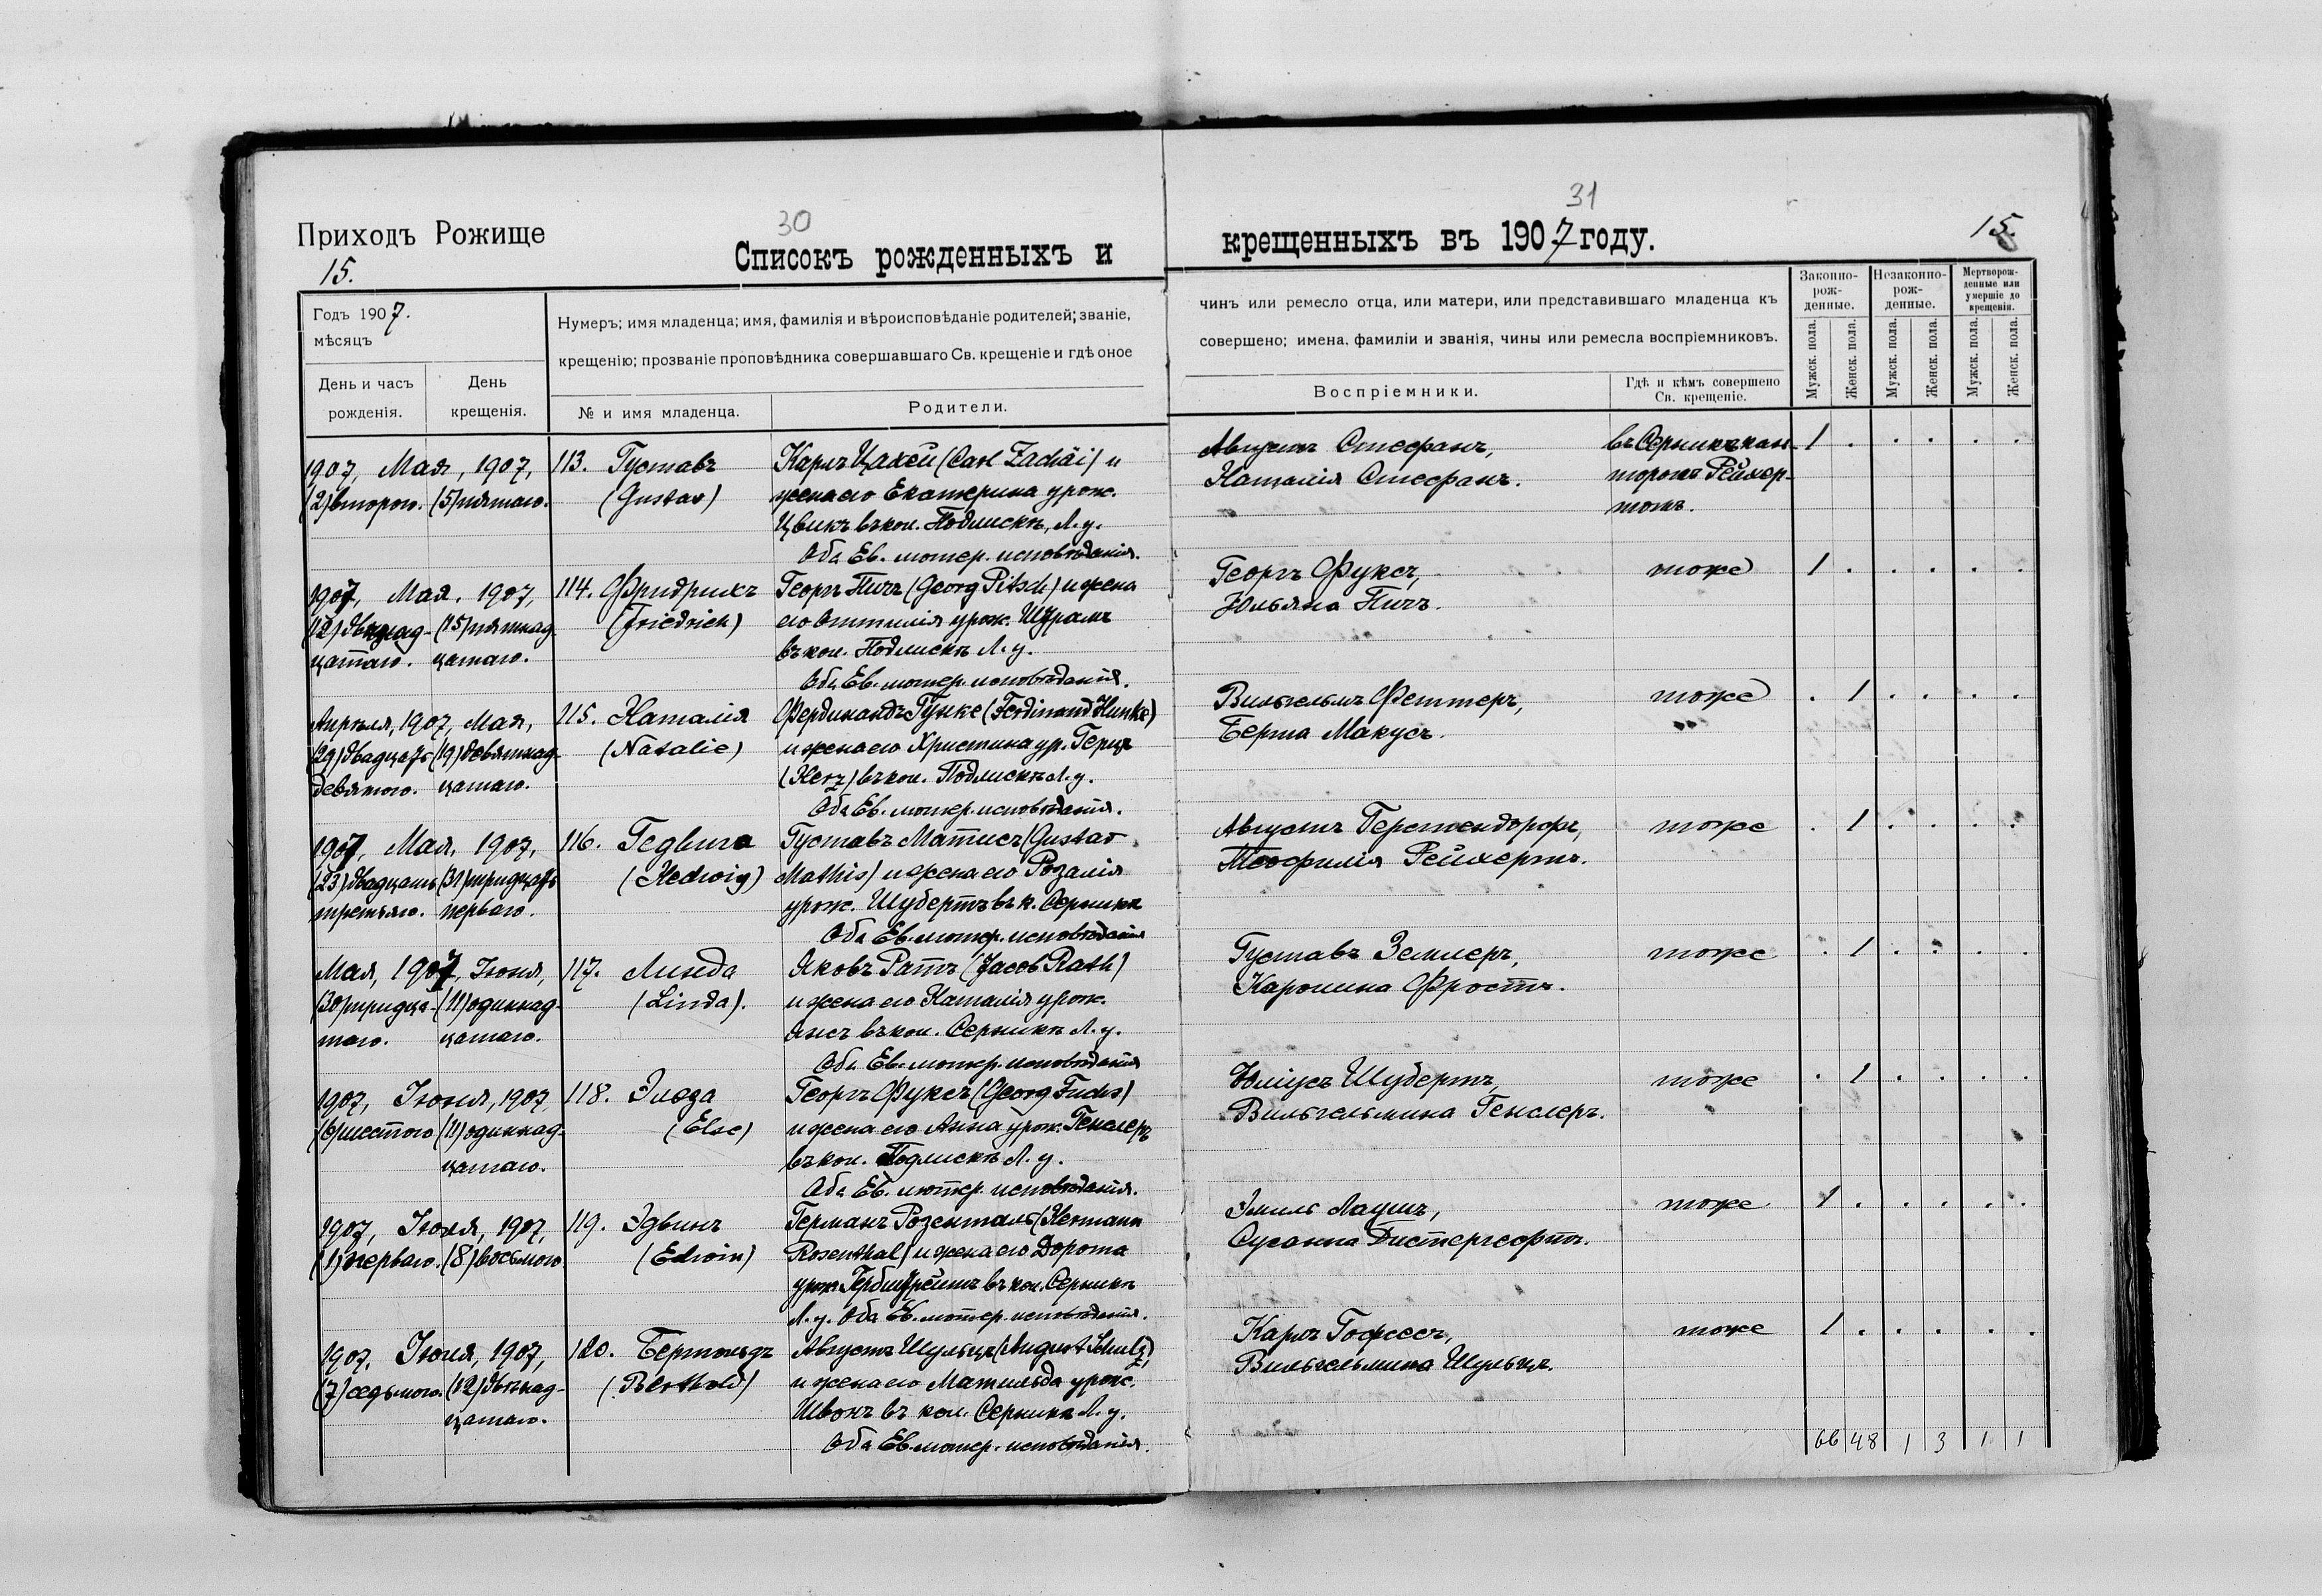 30
31
Приходъ Рожище
15.
Списокъ рожденныхъ и
крещенныхъ въ 1907 году.
15.
Годъ 1907.
мѣсяцъ
День и часъ рожденія.
День крещенія.
Нумеръ; имя младенца; имя, фамилія и вѣроисповѣданіе родителей; званіе,
крещенію; прозваніе проповѣдника совершавшаго Св. крещеніе и гдѣ оное
№ и имя младенца.
Родители.
чинъ или ремесло отца, или матери, или представившаго младенца къ
совершено; имена, фамиліи и званія, чины или ремесла воспріемниковъ.
Воспріемники.
Гдѣ и кѣмъ совершено
Св. крещеніе.
Законно-
рож-
денные.
Незаконно-
рож-
денные.
Мертворож-
денные или
умершіе до
крещенія.
Мужск. пола.
Женск. пола.
Мужск. пола.
Женск. пола.
Мужск. пола.
Женск. пола.
1907, Мая, 1907,
(2) второго. (5) пятаго.
113. Густавъ
(Gustav)
Карлъ Цахей (Carl Zachäi) и
жена его Екатерина урож.
Цвикъ въ кол. Подлискѣ, Л. у.
Оба Ев. лютер. исповѣданія.
Августъ Стефанъ,
Наталія Стефанъ.
въ Серникѣ кан-
торомъ Рейхер-
томъ.
1 . . . . .
1907, Мая, 1907,
(12) двѣнад- (15) пятнад-
цатаго. цатаго.
114. Фридрихъ
(Friedrich)
Георгъ Пичъ (Georg Pitsch) и жена
его Оттилія урож. Шрамъ
въ кол. Подлискѣ Л. у.
Оба Ев. лютер. исповѣданія.
Георгъ Фуксъ,
Юльяна Пичъ.
тоже
1 . . . . .
Апрѣля, 1907, Мая,
(29) двадцать (19) девятнад-
девятого. цатаго.
115. Наталія
(Natalie)
Фердинандъ Гунке (Ferdinand Hunke)
и жена его Христина ур. Герцъ
(Herz) въ кол. Подлискѣ Л. у.
Оба Ев. лютер. исповѣданія.
Вильгельмъ Феттеръ,
Берта Макусъ.
тоже
. 1 . . . .
1907, Мая, 1907,
(23) двадцать (31) тридцать
третьяго. перваго.
116. Гедвига
(Hedwig)
Густавъ Матисъ (Gustav
Mathis) и жена его Розалія
урож. Шубертъ въ к. Серникѣ
Оба Ев. лютер. исповѣданія
Августъ Герстендорфъ,
Теофилія Рейхертъ.
тоже
. 1 . . . .
Мая, 1907, Іюня,
(30) тридца- (11) одиннад-
таго. цатаго.
117. Линда
(Linda).
Яковъ Ратъ (Jacob Rath)
и жена его Наталія урож.
Янсъ въ кол. Серникѣ Л. у.
Оба Ев. лютер. исповѣданія
Густавъ Земперъ,
Каролина Фростъ.
тоже
. 1 . . . .
1907, Іюня, 1907,
(6) шестого (11) одиннад-
цатаго.
118. Элюза
(Else)
Георгъ Фуксъ (Georg Fuchs)
и жена его Анна урож. Генслеръ
въ кол. Подлискѣ Л. у.
Оба Ев. лютер. исповѣданія.
Юліусъ Шубертъ,
Вильгельмина Генслеръ.
тоже
. 1 . . . .
1907, Іюня, 1907,
(1) перваго. (8) восьмого
119. Эдвинъ
(Edwin)
Германъ Розенталь (Hermann
Rosenthal) и жена его Дорота
урож. въ кол. Серникѣ
Л. у. Оба Ев. лютер. исповѣданія.
Эмиль Лаушъ,
Сусанна
тоже
1 . . . . .
1907, Іюня, 1907,
(7) седьмого. (12) двѣнад-
цатаго.
120. Бертольдъ
(Berthold)
Августъ Шульцъ (August Schulz)
и жена его Матильда урож.
Швонъ въ кол. Серникѣ Л. у.
Оба Ев. лютер. исповѣданія.
Карлъ
Вильгельмина Шульцъ.
тоже
1 . . . . .
66 48 1 3 1 1